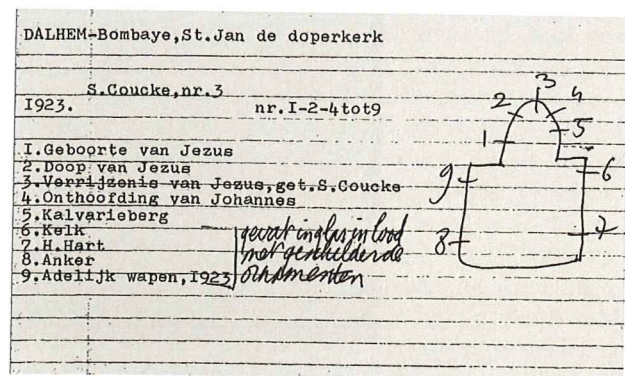 DALHEM-Bombaye,St.Jan de doperkerk
S.Coucke,nr.3
I923. nr.I-2-4tot9
I.Geboorte van Jezus
2.Doop van Jezus
3.Verrijzenis van Jezus,get.S.Coucke
4.Onthoofding van Johannes
5.Kalvarieberg
6.Kelk
7.H.Hart
8.Anker
9.Adelijk wapen,I923
gevat in glas in lood
met geschilderde
ornamenten
1
2
3
4
5
6
7
8
9